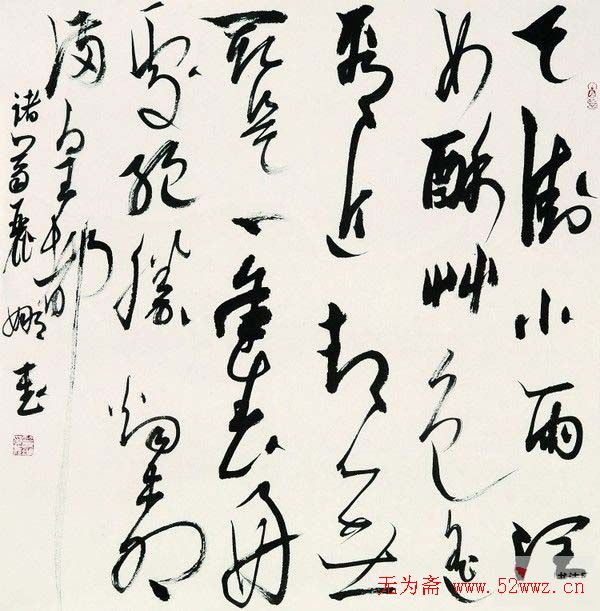 天街小雨润
如酥艸色遥
看近却無
最是一年春好
處絕勝烟柳
满皇都
诸葛丽娜書
无为斋 www.52wwz.cn